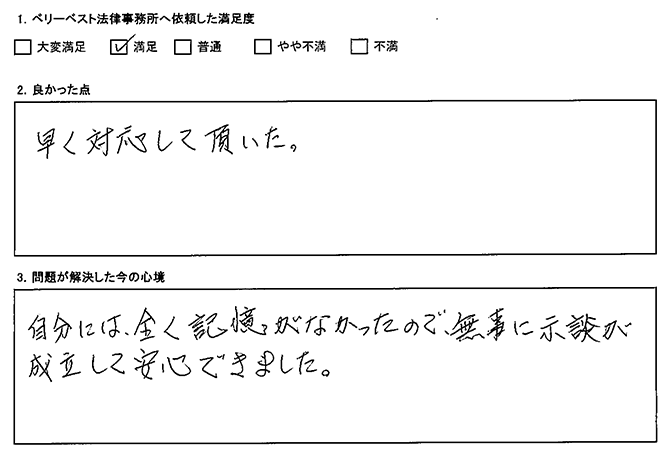 1. ベリーベスト法律事務所へ依頼した満足度
□ 大変満足 ☑ 満足 □ 普通 □ やや不満 □ 不満
2. 良かった点
早く対応して頂いた。
3. 問題が解決した今の心境
自分には、全く記憶がなかったので、無事に示談が
成立して安心できました。